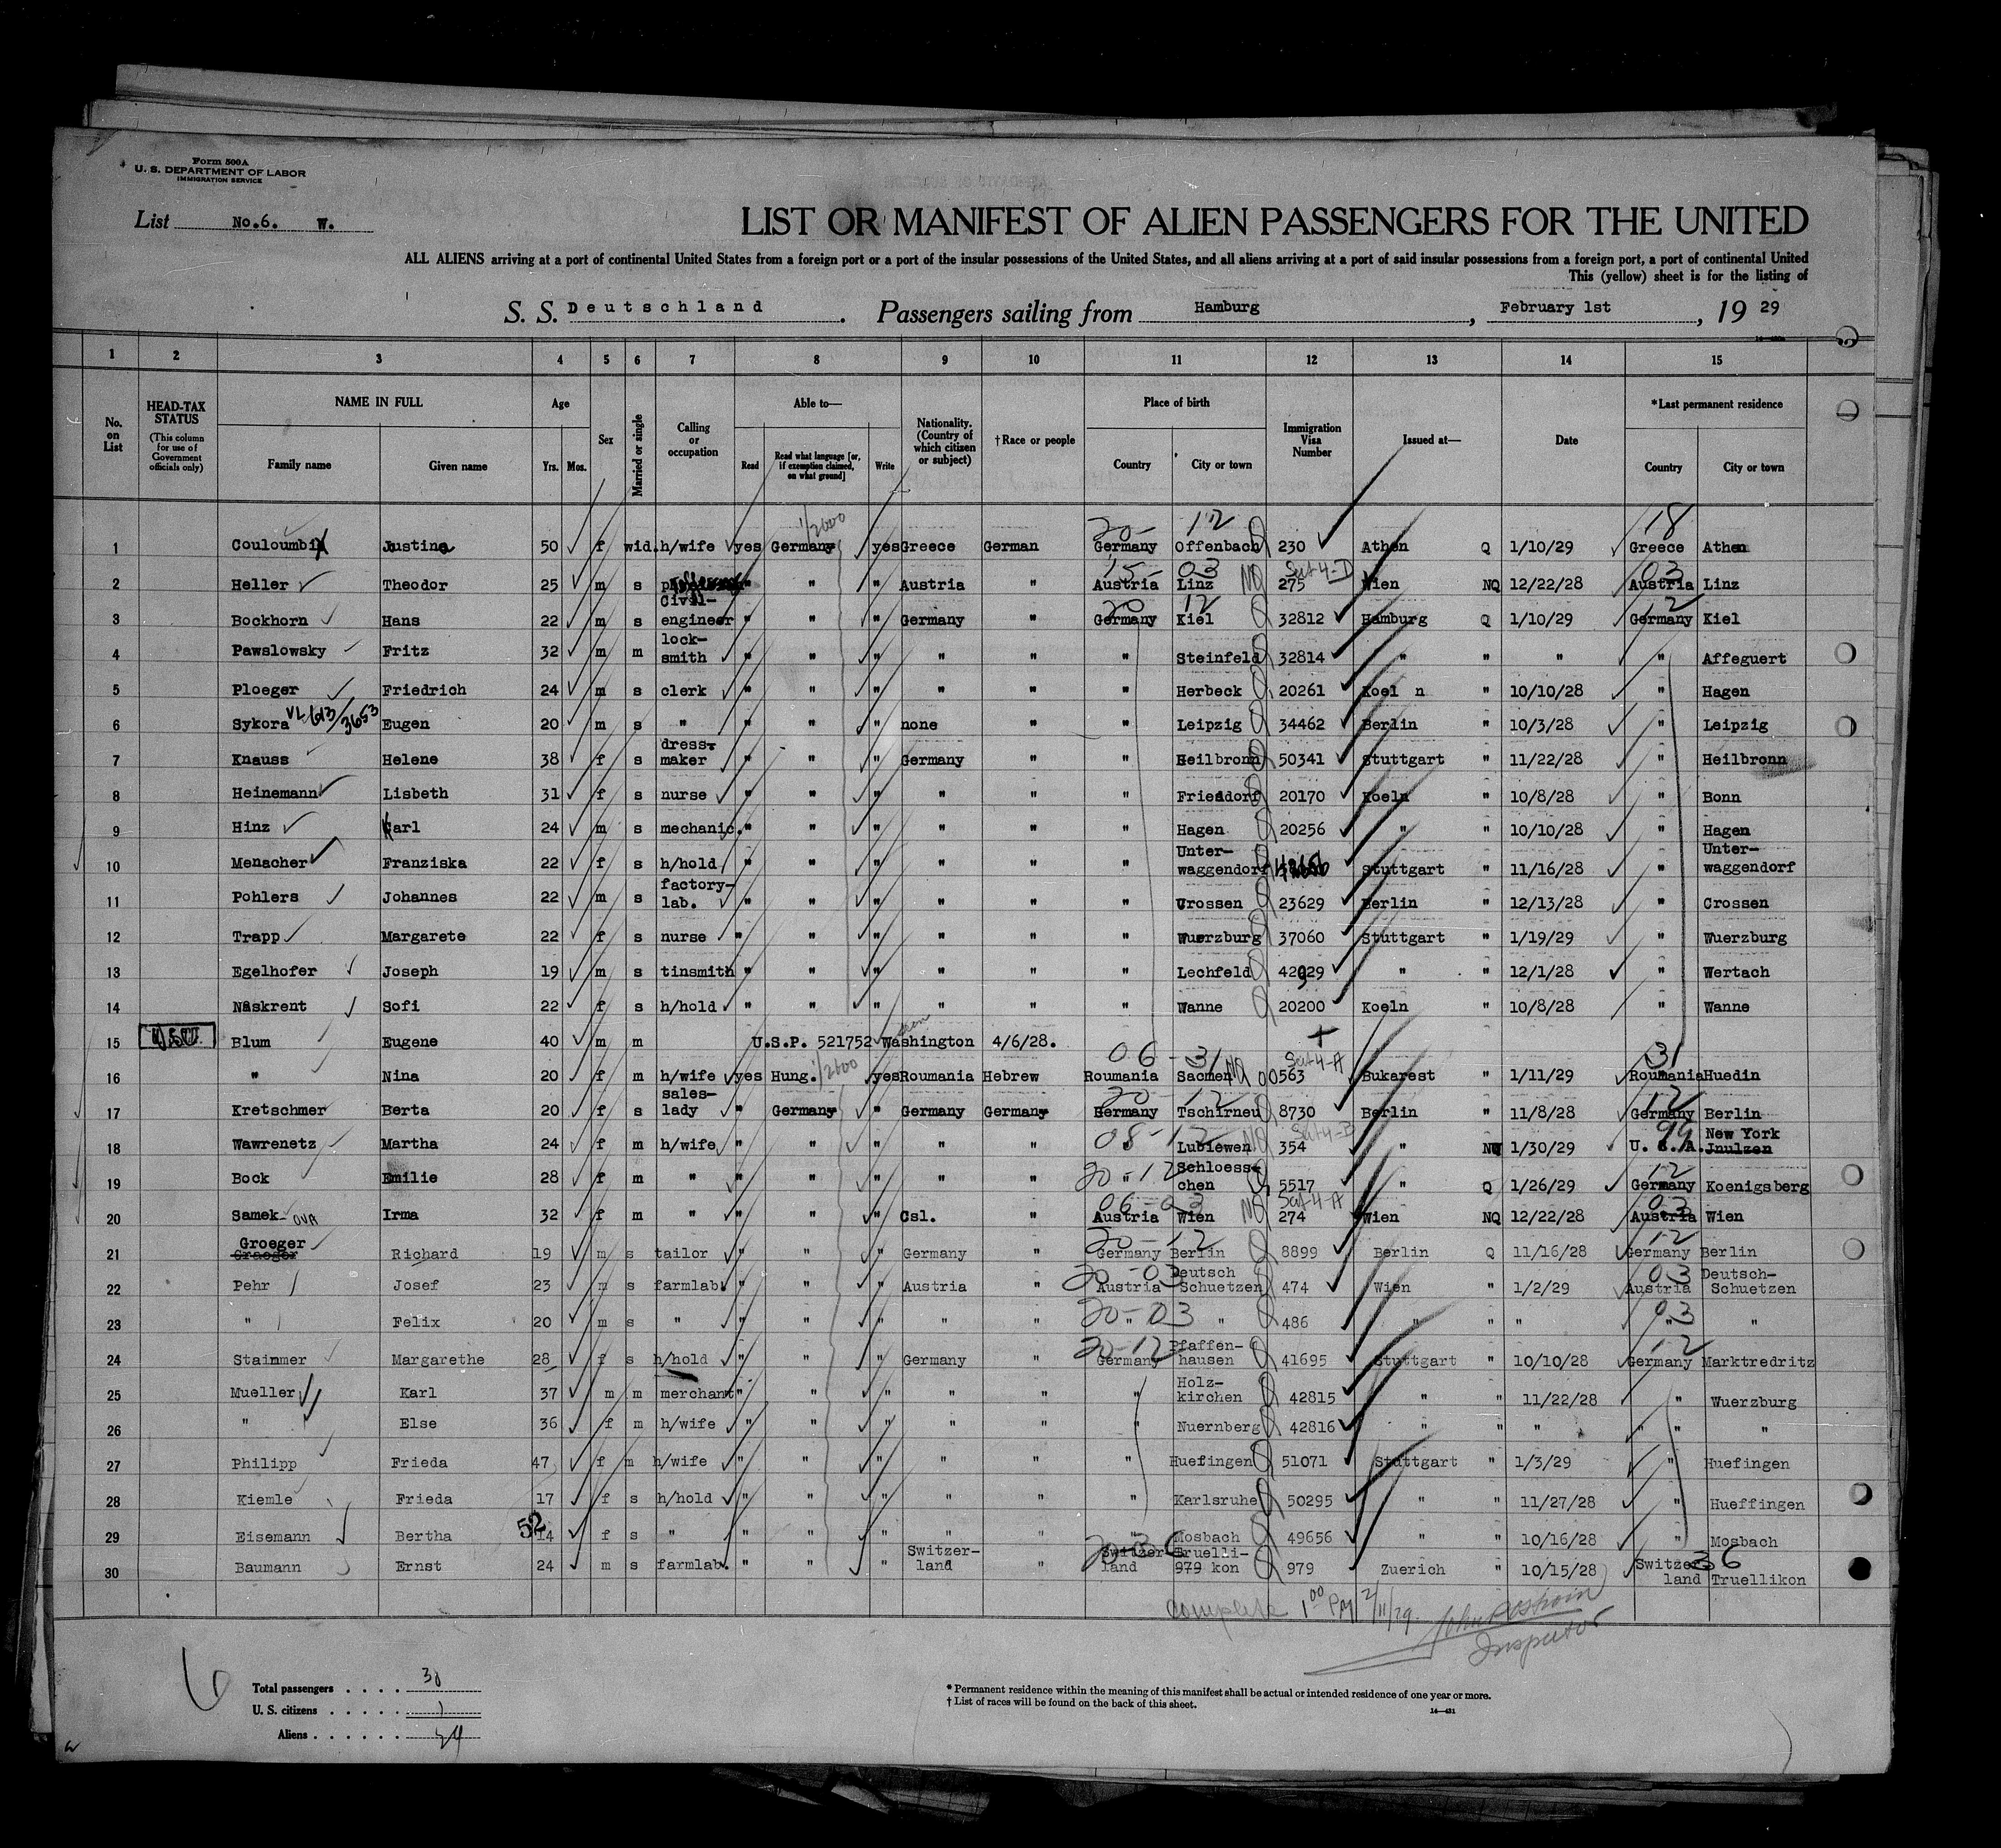 Form 500A
U. S. DEPARTMENT OF LABOR
IMMIGRATION SERVICE
List No.6. W.
LIST OR MANIFEST OF ALIEN PASSENGERS FOR THE UNITED
ALL ALIENS arriving at a port of continental United States from a foreign port or a port of the insular possessions of the United States, and all aliens arriving at a port of said insular possessions from a foreign port, a port of continental United
This (yellow) sheet is for the listing of
S. S. Deutschland. Passengers sailing from Hamburg, February 1st, 19 29
1 2 3 4 5 6 7 8 9 10 11 12 13 14 15
No. on List HEAD-TAX STATUS (This column for use of Government officials only) NAME IN FULL Family name Given name Age Yrs. Mos. Sex Married or single Calling or occupation Able to— Read Read what language [or, if exemption claimed, on what ground] Write Nationality. (Country of which citizen or subject) †Race or people Place of birth Country City or town Immigration Visa Number Issued at— Date *Last permanent residence Country City or town
20- 12 18
1 Couloumbi Justine 50 f wid. h/wife yes German yes Greece German Germany Offenbach 230 Athen Q 1/10/29 Greece Athen
15- 03 NQ Sec 4-D 03
2 Heller Theodor 25 m s " " " Austria " Austria Linz 275 Wien NQ 12/22/28 Austria Linz
20 12 12
3 Bockhorn Hans 22 m s Civil-engineer " " " Germany " Germany Kiel 32812 Hamburg Q 1/10/29 Germany Kiel
4 Pawslowsky Fritz 32 m m lock-smith " " " " " " Steinfeld 32814 " " " " Affeguert
5 Ploeger Friedrich 24 m s clerk " " " " " " Herbeck 20261 Koel n " 10/10/28 " Hagen
6 Sykora Eugen 20 m s " " " " none " " Leipzig 34462 Berlin " 10/3/28 " Leipzig
7 Knauss Helene 38 f s dress-maker " " " Germany " " Heilbronn 50341 Stuttgart " 11/22/28 " Heilbronn
8 Heinemann Lisbeth 31 f s nurse " " " " " " Friesdorf 20170 Koeln " 10/8/28 " Bonn
9 Hinz Karl 24 m s mechanic. " " " " " " Hagen 20256 " " 10/10/28 " Hagen
10 Menacher Franziska 22 f s h/hold " " " " " " Unter-waggendorf Stuttgart " 11/16/28 " Unter-waggendorf
11 Pohlers Johannes 22 m s factory-lab. " " " " " " Crossen 23629 Berlin " 12/13/28 " Crossen
12 Trapp Margarete 22 f s nurse " " " " " " Wuerzburg 37060 Stuttgart " 1/19/29 " Wuerzburg
13 Egelhofer Joseph 19 m s tinsmith " " " " " " Lechfeld 42929 " " 12/1/28 " Wertach
14 Naskrent Sofi 22 f s h/hold " " " " " " Wanne 20200 Koeln " 10/8/28 " Wanne
15 Blum Eugene 40 m m U.S.P. 521752 Washington 4/6/28.
06 - 31 NQ Sec 4-A 31
16 " Nina 20 f m h/wife yes Hung. yes Roumania Hebrew Roumania Sacmen 563 Bukarest " 1/11/29 Roumania Huedin
20 - 12 12
17 Kretschmer Berta 20 f s sales-lady " German " Germany German Germany Tschirneu 8730 Berlin " 11/8/28 Germany Berlin
08 - 12 NQ Sec 4-B 99
18 Wawrenetz Martha 24 f m h/wife " " " " " Lubiewen 354 " NQ 1/30/29 U. S. A. New York Jnulzen
20 - 12 12
19 Bock Emilie 28 f m " " " " " " Schloess-chen 5517 " Q 1/26/29 Germany Koenigsberg
06 - 03 NQ Sec 4-A 03
20 Samek OVA Irma 32 f m " " " " Csl. " Austria Wien 274 Wien NQ 12/22/28 Austria Wien
20 - 12 12
21 Groeger Graeger Richard 19 m s tailor " " " Germany " Germany Berlin 8899 Berlin Q 11/16/28 Germany Berlin
20 - 03 03
22 Pehr Josef 23 m s farmlab. " " " Austria " Austria Deutsch Schuetzen 474 Wien " 1/2/29 Austria Deutsch-Schuetzen
20 - 03 03
23 " Felix 20 m s " " " " " " " " 486 " " " " "
20-12 12
24 Stainmer Margarethe 28 f s h/hold " " " Germany " Germany Pfaffen-hausen 41695 Stuttgart " 10/10/28 Germany Marktredritz
25 Mueller Karl 37 m m merchant " " " " " " Holz-kirchen 42815 " " 11/22/28 " Wuerzburg
26 " Else 36 f m h/wife " " " " " " Nuernberg 42816 " " " " "
27 Philipp Frieda 47 f m h/wife " " " " " Huefingen 51071 Stuttgart " 1/3/29 " Huefingen
28 Kiemle Frieda 17 f s h/hold " " " " " " Karlsruhe 50295 " " 11/27/28 " Hueffingen
29 Eisemann Bertha 52 14 f s " " " " " " " Mosbach 49656 " " 10/16/28 " Mosbach
20-36 36
30 Baumann Ernst 24 m s farmlab. " " " Switzer-land " Switzer-land Truelli-kon 979 979 Zuerich " 10/15/28 Switzer-land Truellikon
complete 1 00 PM 2/11/29.
Inspector
6
Total passengers . . . . 30
U. S. citizens . . . . . 1
Aliens . . . . . . 29
* Permanent residence within the meaning of this manifest shall be actual or intended residence of one year or more.
† List of races will be found on the back of this sheet.
14—431